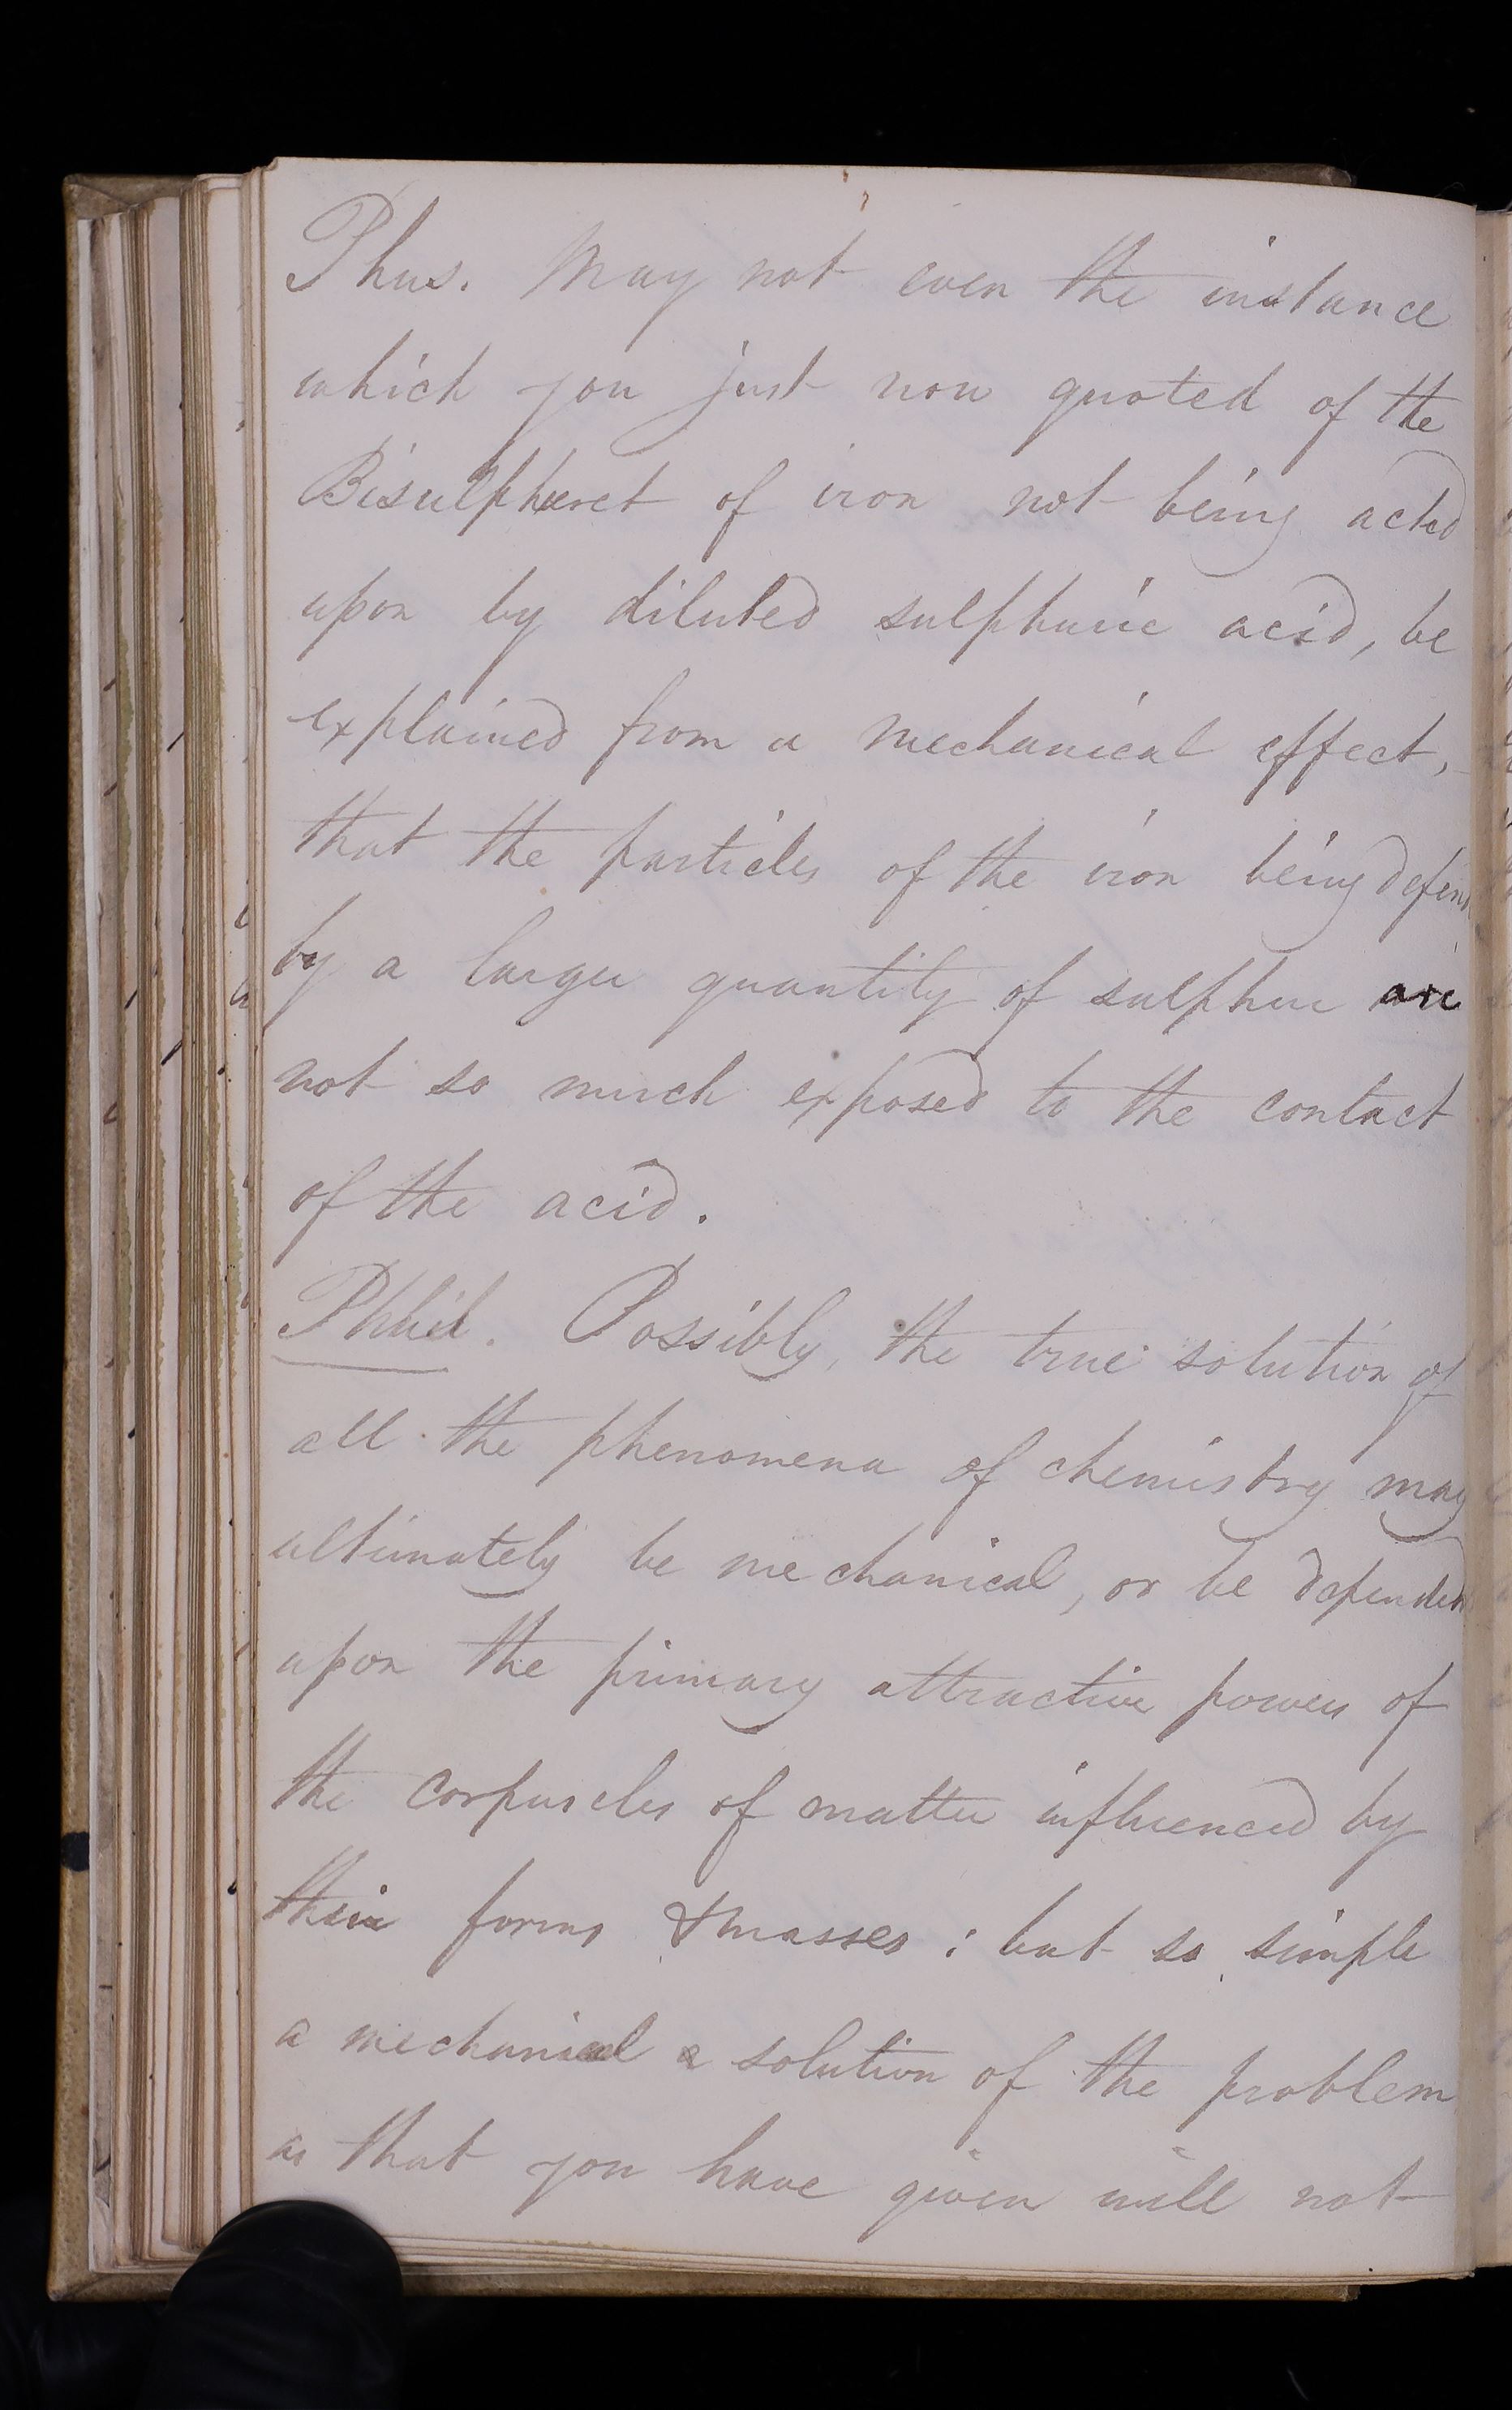 Phus. May not even the instance
which you just now quoted of the
Bisulphuret of iron not being acted
upon by diluted sulphuric acid, be
explained from a mechanical effect,
that the particles of the iron being defend
by a larger quantity of sulphur are
not so much exposed to the contact
of the acid.
Phlil. Possibly, the true solution of
all the phenomena of chemistry may
ultimately be mechanical, or be dependent
upon the primary attractive powers of
the corpuscles of matter influenced by
their forms & masses; but so simple
a mechanical a solution of the problem
as that you have given will not